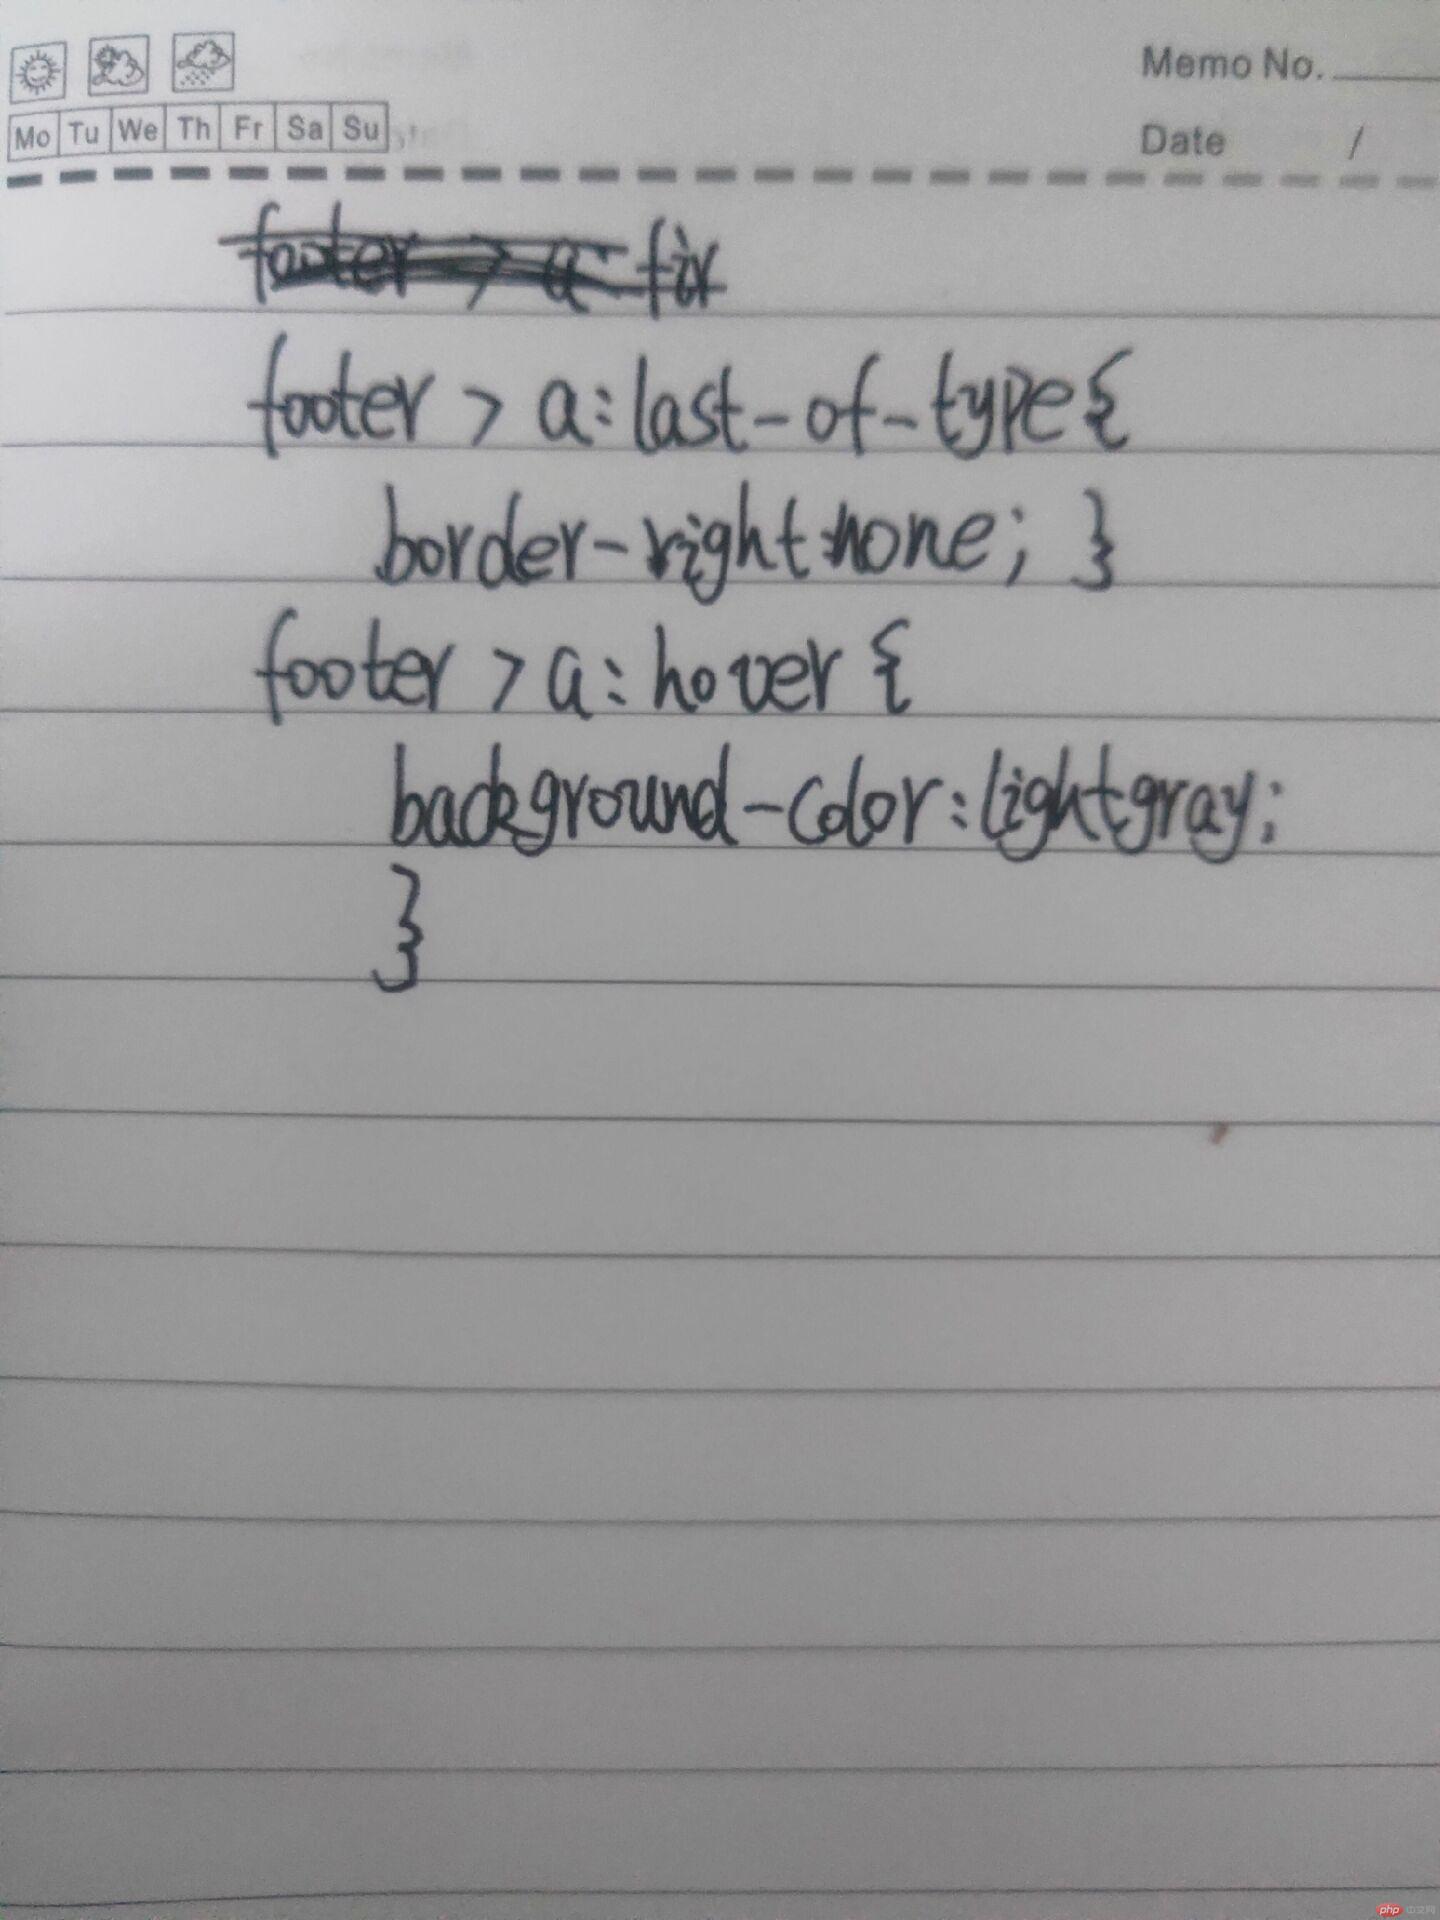 Memo No.
Mo Tu We Th Fr Sa Su
Date /
footer > a fir
footer > a:last-of-type{
border-right:none; }
footer > a:hover {
background-color:lightgray;
}
php 中文网